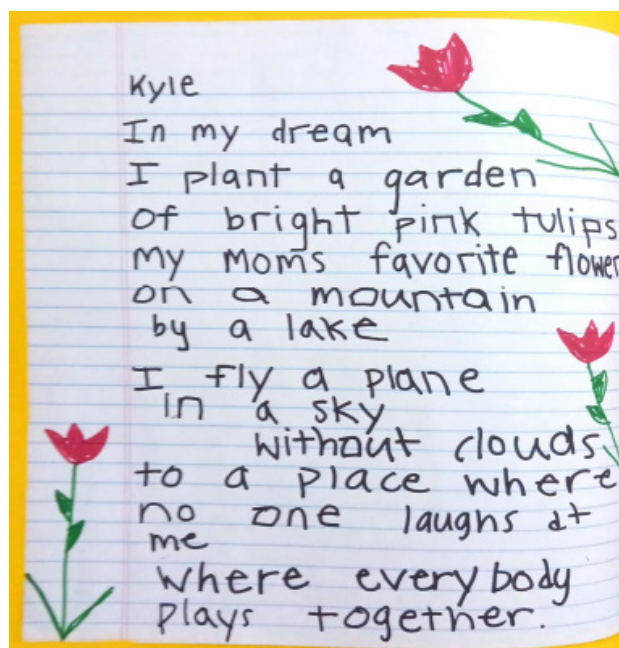 Kyle
In my dream
I plant a garden
of bright pink tulips
my moms favorite flower
on a mountain
by a lake
I fly a plane
in a sky
without clouds
to a place where
no one laughs at
me
where everybody
plays together.